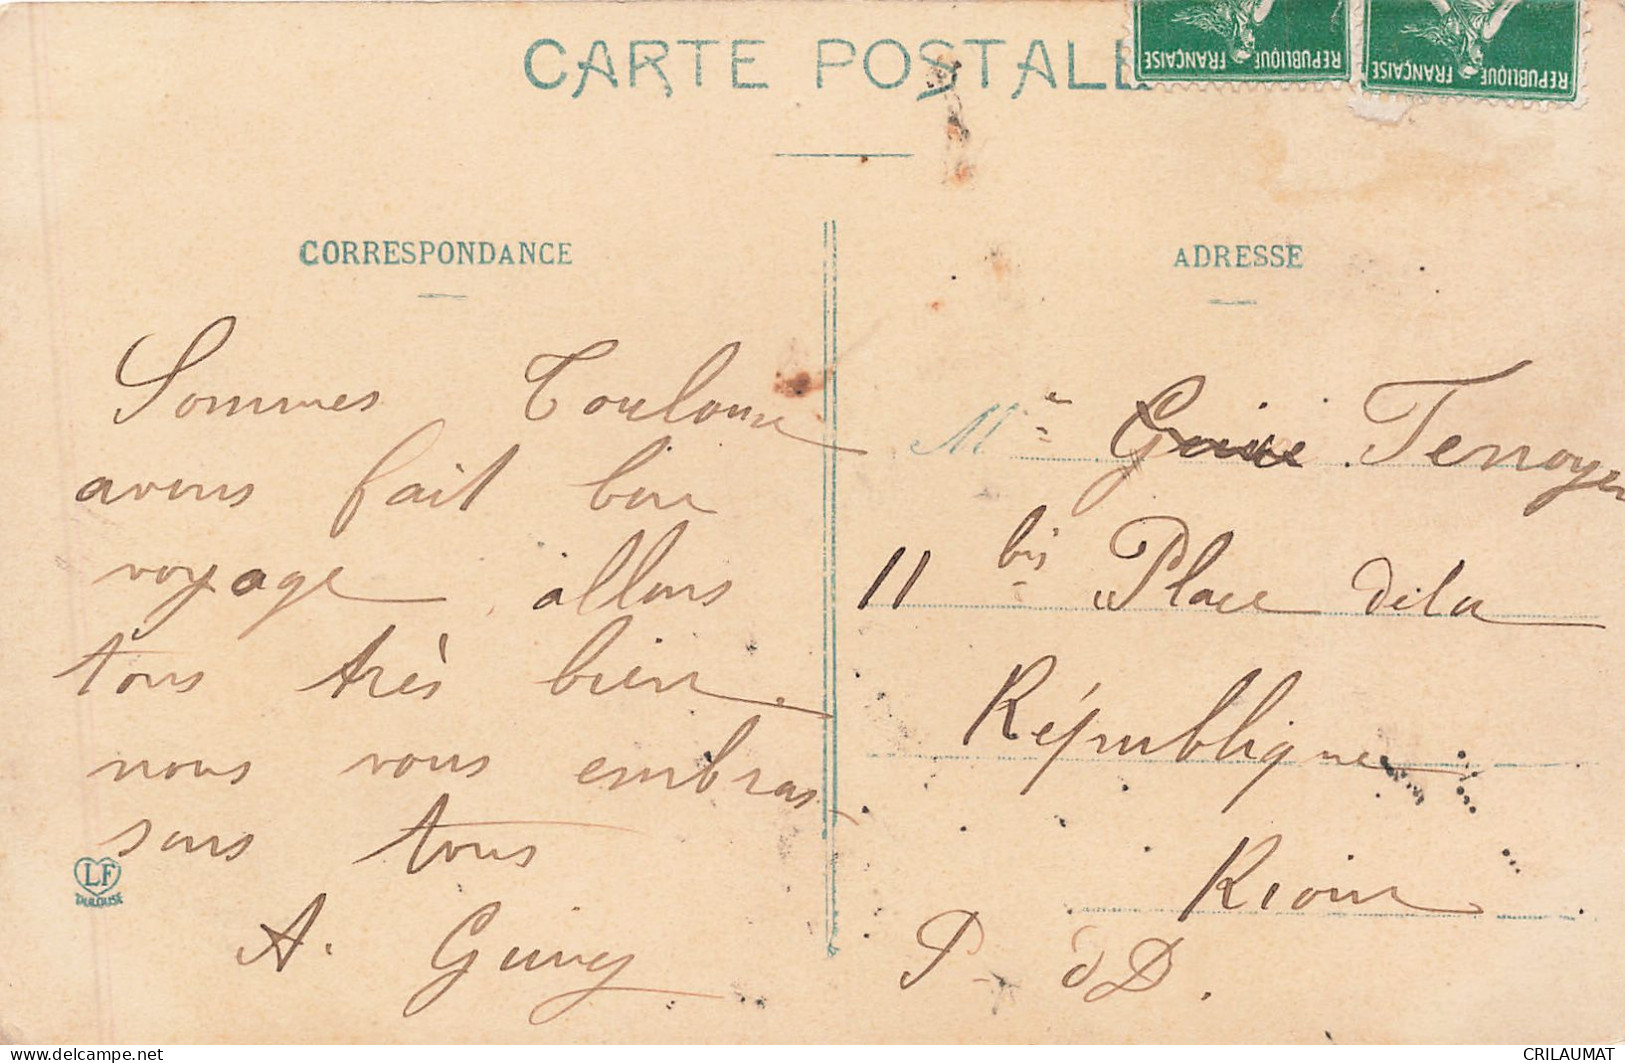 CARTE POSTALE
RÉPUBLIQUE FRANÇAISE
RÉPUBLIQUE FRANÇAISE
CORRESPONDANCE
Sommes Toulouse
avons fait bon
voyage allons
tous très bien.
nous vous embras
sons tous
A.
LF
TOULOUSE
ADRESSE
M Terroyer
11 bis Place de la
République
Riom
P. d D.
CRILAUMAT